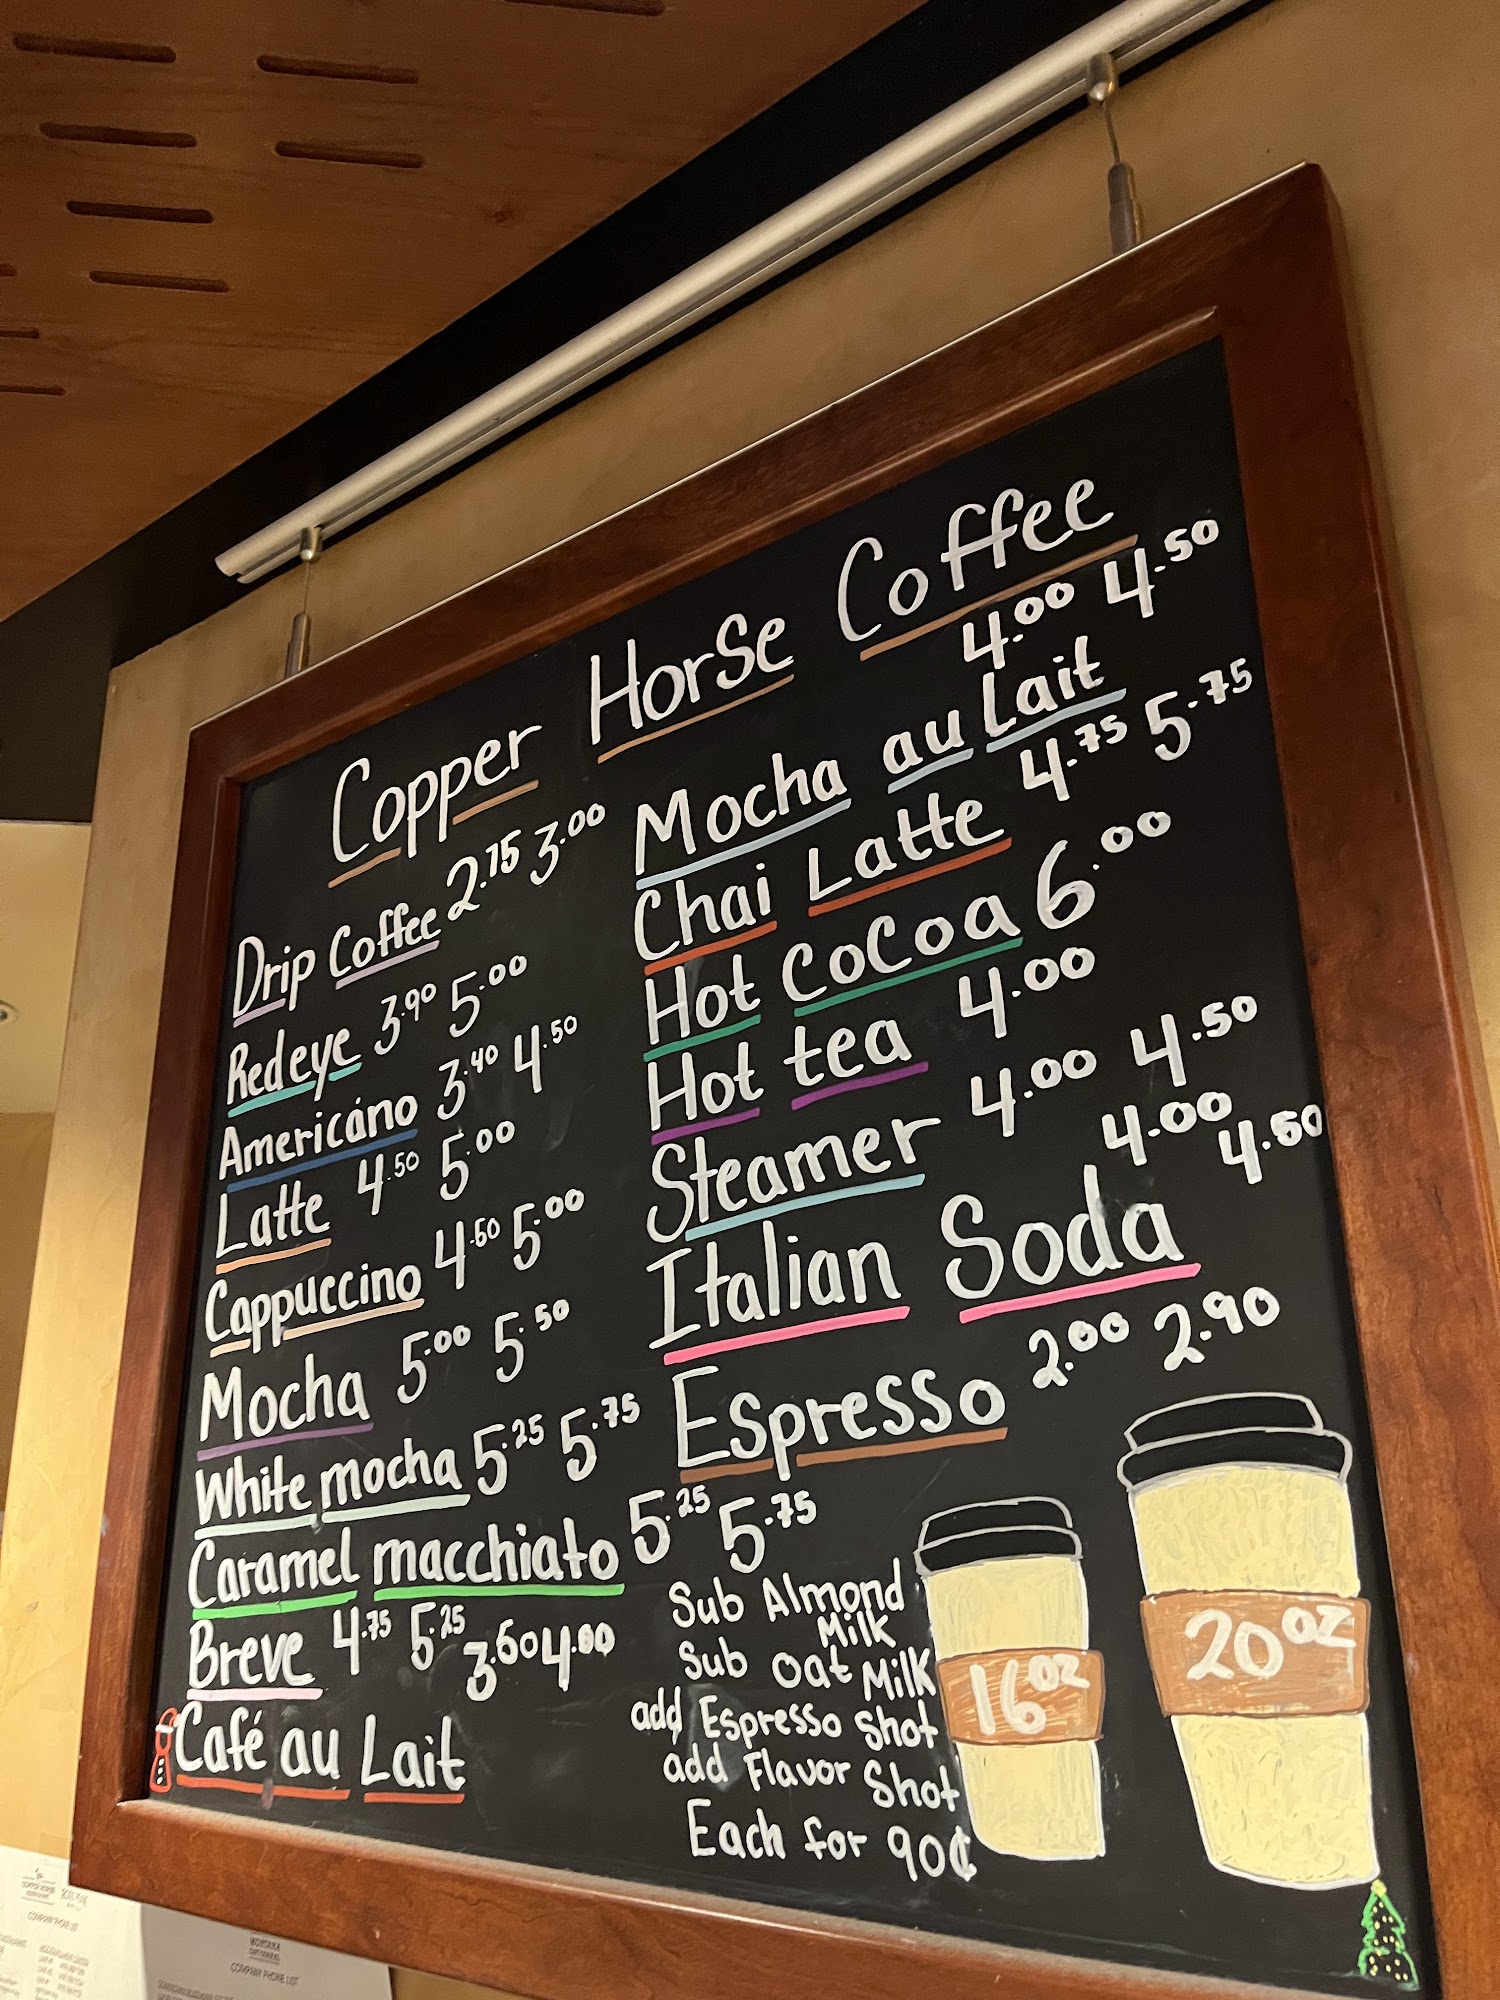 Copper Horse Coffee
Drip Coffee 2.75 3.00
Redeye 3.90 5.00
Americano 3.40 4.50
Latte 4.50 5.00
Cappuccino 4.50 5.00
Mocha 5.00 5.50
White mocha 5.25 5.75
Caramel macchiato 5.25 5.75
Breve 4.75 5.25
3.60 4.00
Café au Lait
4.00 4.50
Mocha au Lait
Chai Latte 4.75 5.75
Hot Cocoa 6.00
Hot tea 4.00
Steamer 4.00 4.50
4.00 4.50
Italian Soda
Espresso 2.00 2.90
Sub Almond
Milk
Sub oat Milk
add Espresso Shot
add Flavor Shot
Each for 90¢
16oz
20oz
COMPANY PHONE LIST
MONTANA
COMPANY PHONE LIST